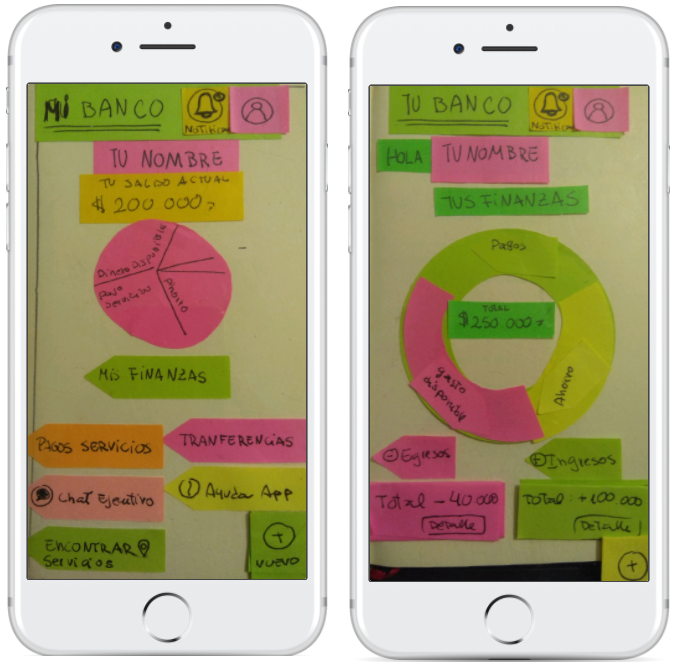 MÍ BANCO
NOTIFICA
TU NOMBRE
TU SALDO ACTUAL
$ 200 000.-
Dinero Disponible
Pago
Servicios
Ahorro
MIS FINANZAS
PAGOS SERVICIOS
TRANFERENCIAS
Chat Ejecutivo
Ayuda App
ENCONTRAR
Servicios
+
NUEVO
TU BANCO
NOTIFICA
HOLA
TU NOMBRE
TUS FINANZAS
Pagos
TOTAL
$250 000.-
gasto
disponible
Ahorro
- Egresos
+ Ingresos
Total - 40 000
Detalle
TOTAL: +100 000
Detalle
+